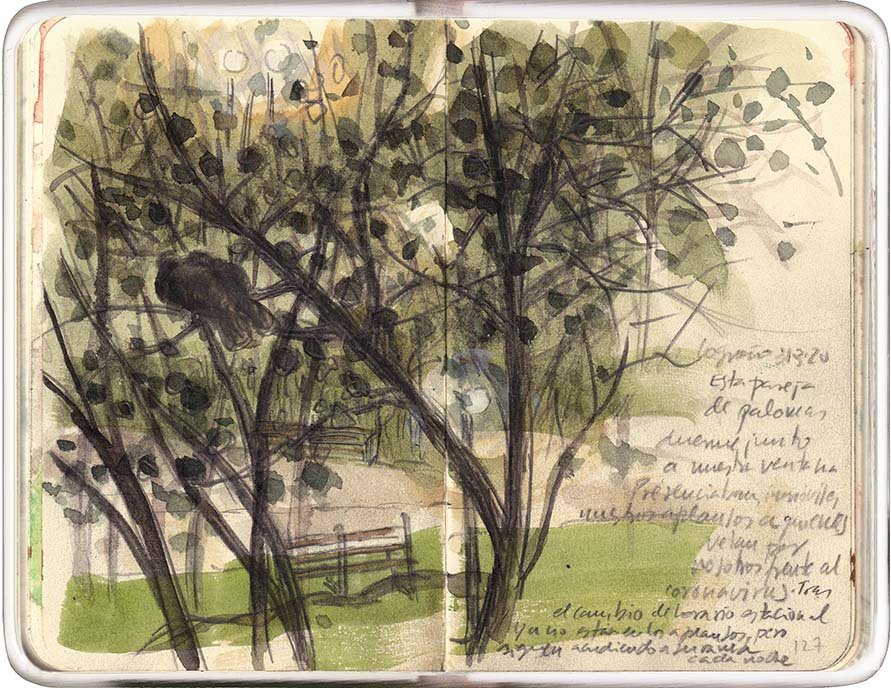 Logroño 313·20
Esta pareja
de palomas
duerme junto
a nuestra ventana
Presencian inmóviles
nuestros aplausos a quienes
velan por
nosotros frente al
coronavirus. Tras
el cambio de horario estacional
ya no están en los aplausos, pero
siguen acudiendo a su rama
cada noche
127